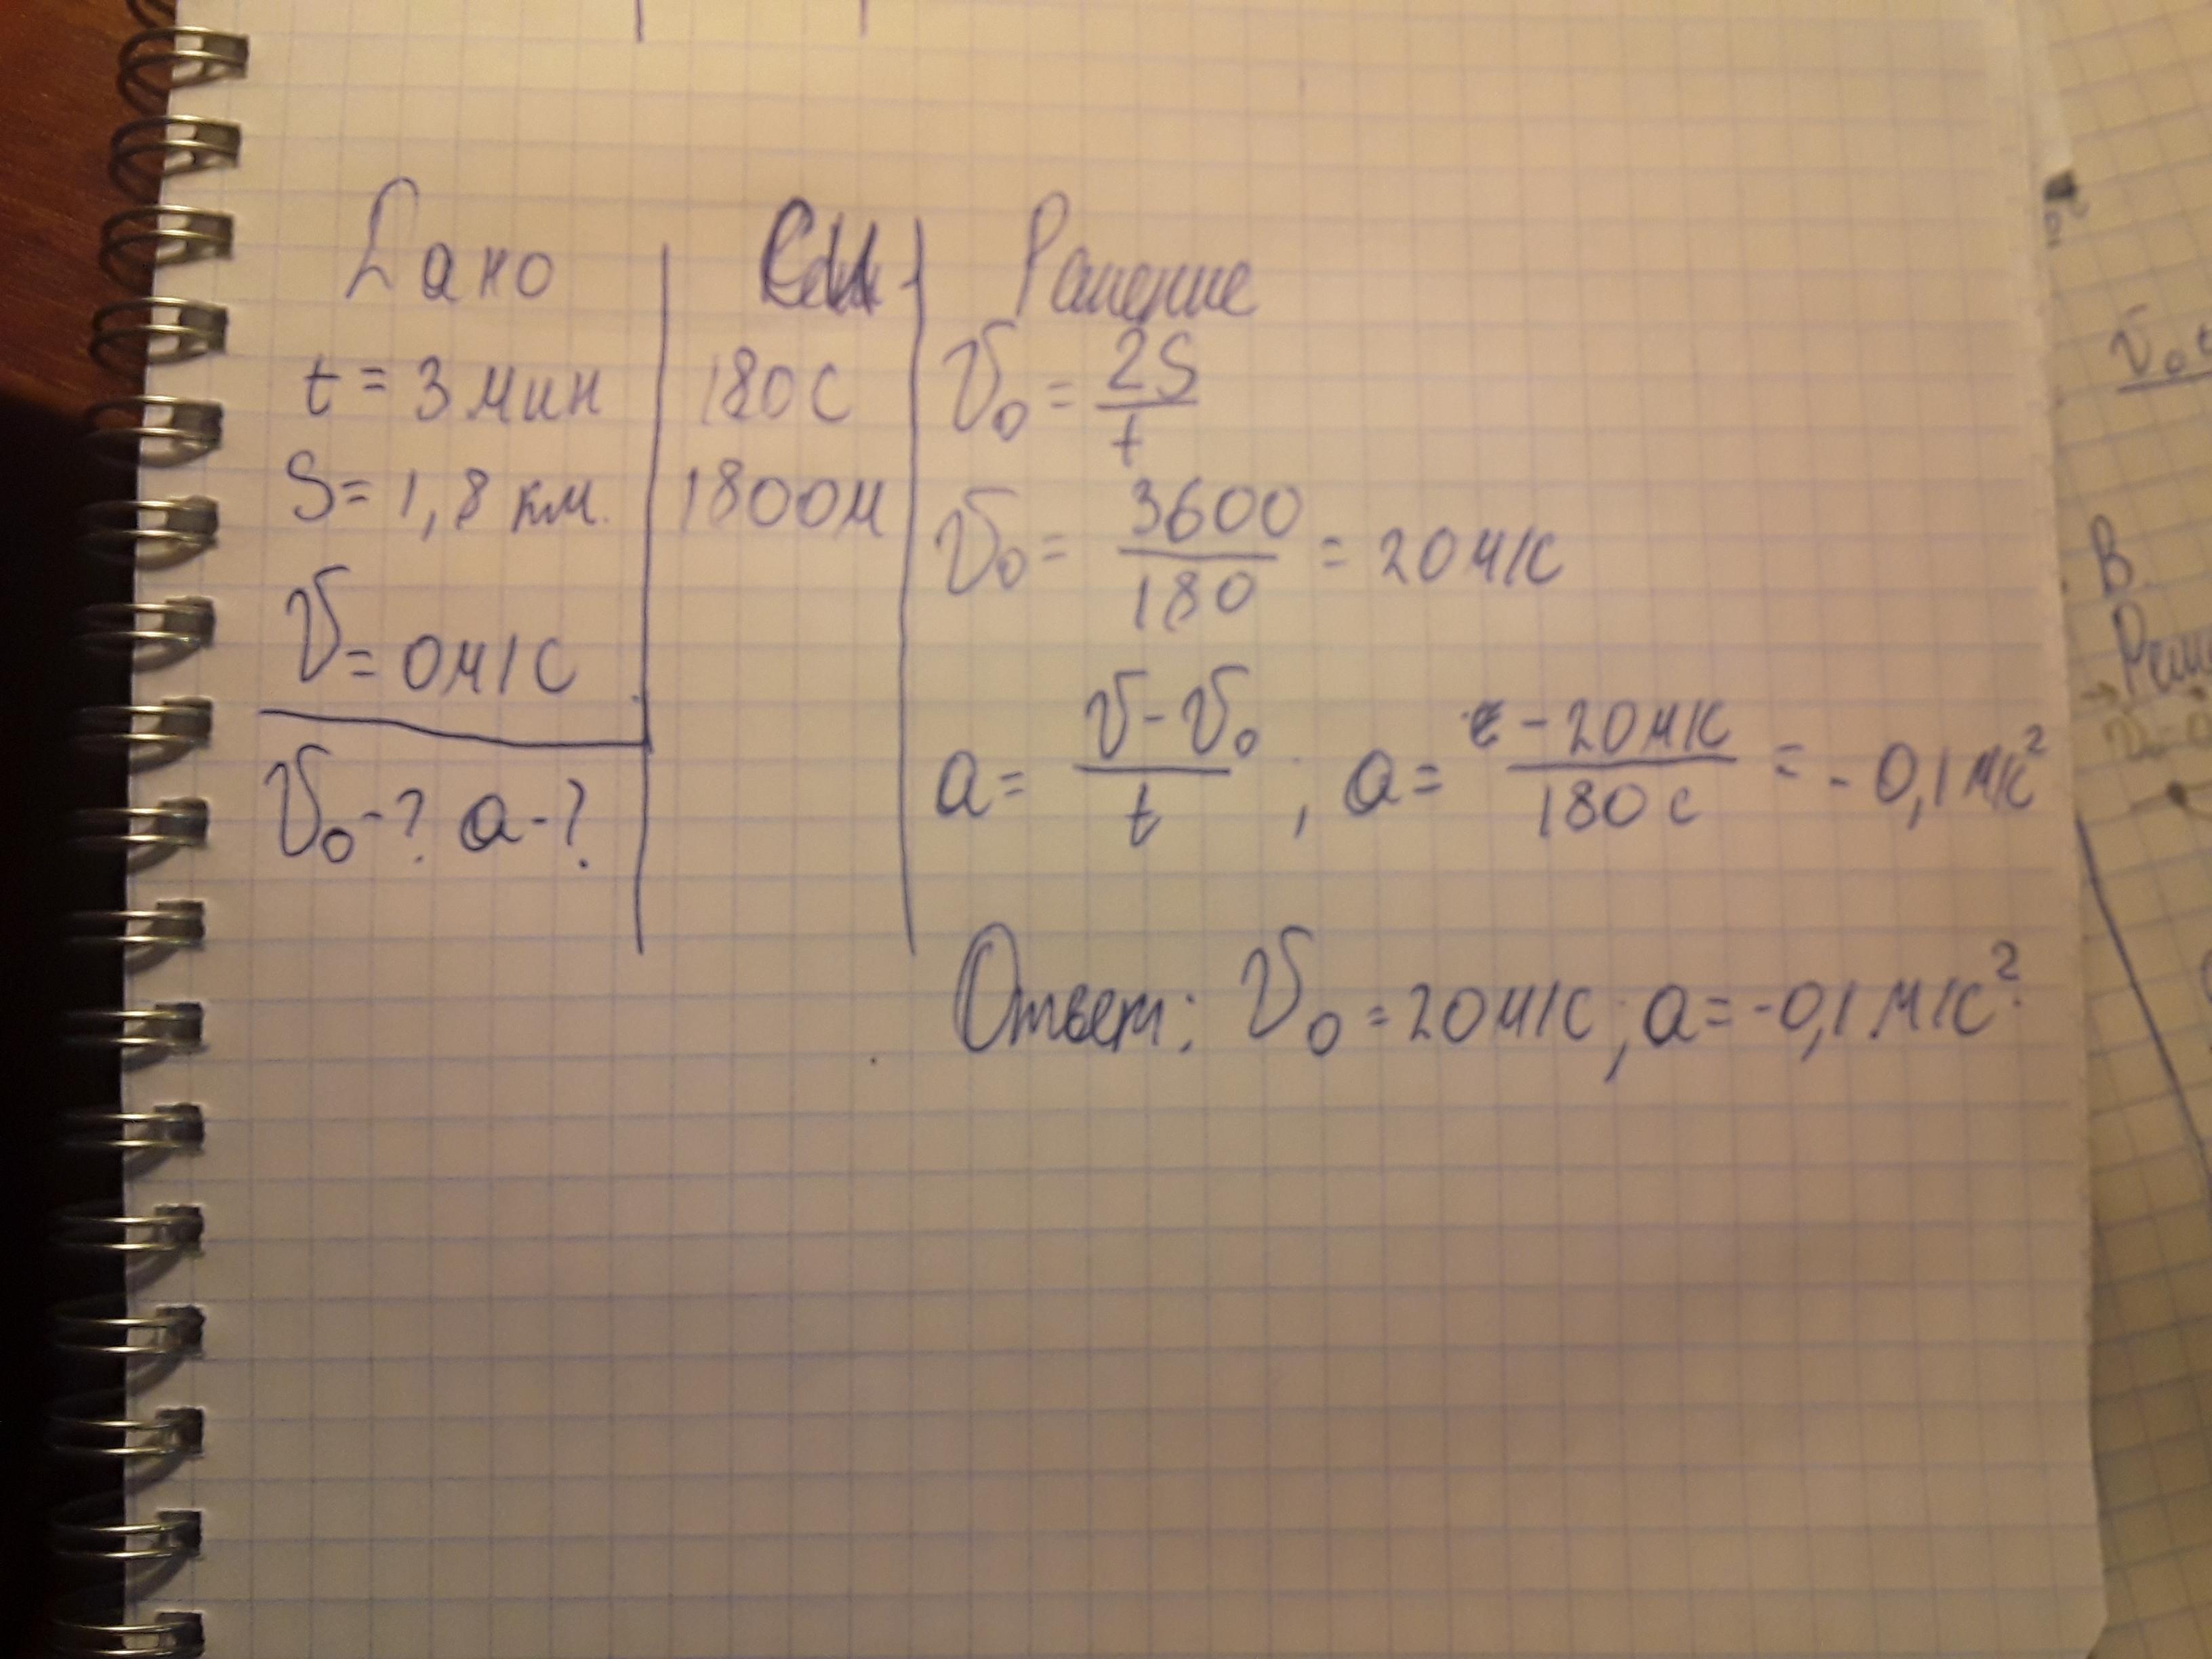 Дано
t = 3 мин
S = 1,8 км.
V = 0 м/с
V₀ - ? a - ?
СИ
180 с
1800 м
Решение
V₀ = 2S/t
V₀ = 3600/180 = 20 м/с
a = V - V₀/t ; a = - 20 м/с/180 с = - 0,1 м/с²
Ответ: V₀ = 20 м/с ; a = -0,1 м/с²
В.